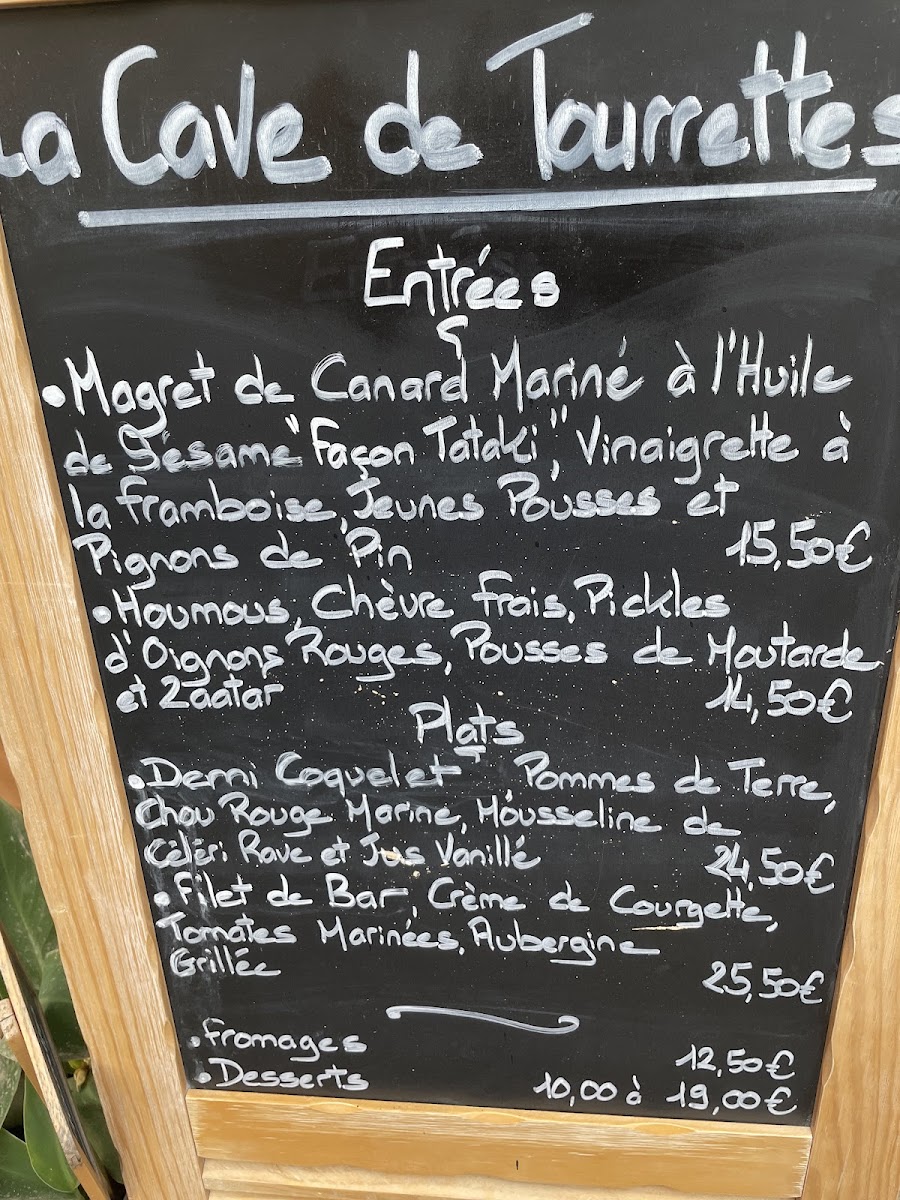 La Cave de Tourrettes
Entrées
• Magret de Canard Mariné à l'Huile
de Sésame "Façon Tataki", Vinaigrette à
la framboise, Jeunes Pousses et
Pignons de Pin 15,50€
• Houmous, Chèvre frais, Pickles
d'Oignons Rouges, Pousses de Moutarde
et Zaatar 14,50€
Plats
• Demi Coquelet, Pommes de Terre,
Chou Rouge Mariné, Mousseline de
Céléri Rave et Jus Vanillé 24,50€
• Filet de Bar, Crème de Courgette,
Tomates Marinées, Aubergine
Grillée 25,50€
• Fromages 12,50€
• Desserts 10,00 à 19,00€